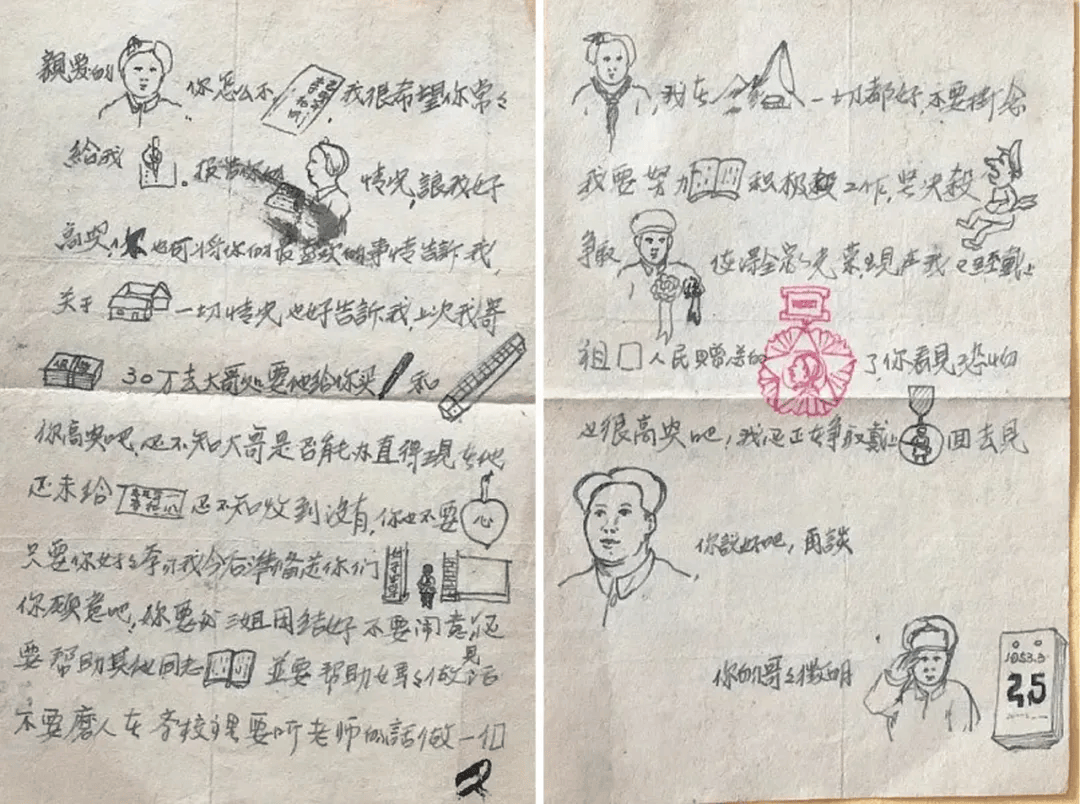 親爱的 你怎么不 我很希望你常々
給我 报告你的 情况,讓我好
高兴,你也可将你们最喜欢的事情告訴我
关于 一切情况也好告訴我,上次我寄
30万去大哥处要他给你买 和
你高兴吧,还不知大哥是否能办直得,現在他
还未给 还不知收到沒有,你也不要 心
只要你好好学习我今后準备送你们
你願意吧,你要和三姐团结好不要闹意見还
要帮助其他同志 並要帮助妈妈做活
不要磨人在学校裡要听老师的話做一個
,我在 一切都好,不要掛念
我要努力 积极 工作,坚决殺
争取 使得全家光荣,現在我已经戴上
祖 人民贈送的 了你看見恐怕
也很高兴吧,我还正在争取戴上 回去見
你説好吧,再談
你的哥々徵明 1953.3
25